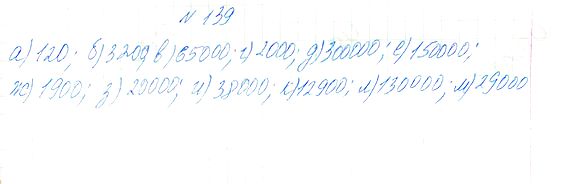 № 139
а) 120; б) 3200 в) 65000; г) 2000; д) 300000; е) 150000;
ж) 1900; з) 20000; и) 38000; к) 12900; л) 130000; м) 29000